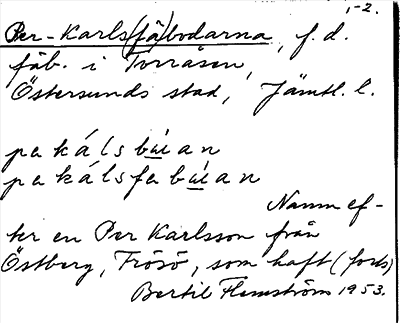 1-2.
Per-Karls(fä)bodarna, f.d.
fäb. i Torråsen,
Östersunds stad, Jämtl. l.
pakálsbùan
pakálsfabùan
Namn ef-
ter en Per Karlsson från
Östberg, Frösö, som haft (forts)
Bertil Flemström 1953.